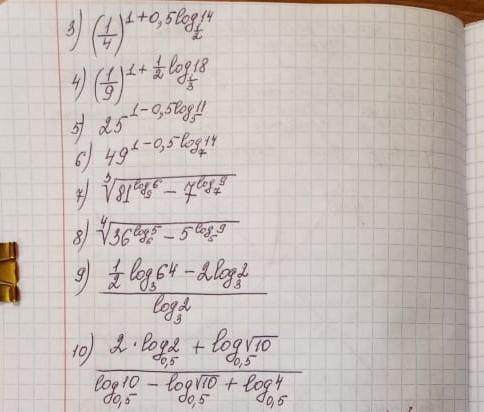 3) (1/4)^(1+0,5log_(1/2) 14)
4) (1/9)^(1+1/2 log_(1/3) 18)
5) 25^(1-0,5log_5 11)
6) 49^(1-0,5log_7 14)
7) ∛(81^(log_9 6) - 7^(log_7 9))
8) ∜(36^(log_6 5) - 5^(log_5 9))
9) (1/2 log_3 64 - 2log_3 2) / (log_3 2)
10) (2·log_0,5 2 + log_0,5 √10) / (log_0,5 10 - log_0,5 √10 + log_0,5 4)